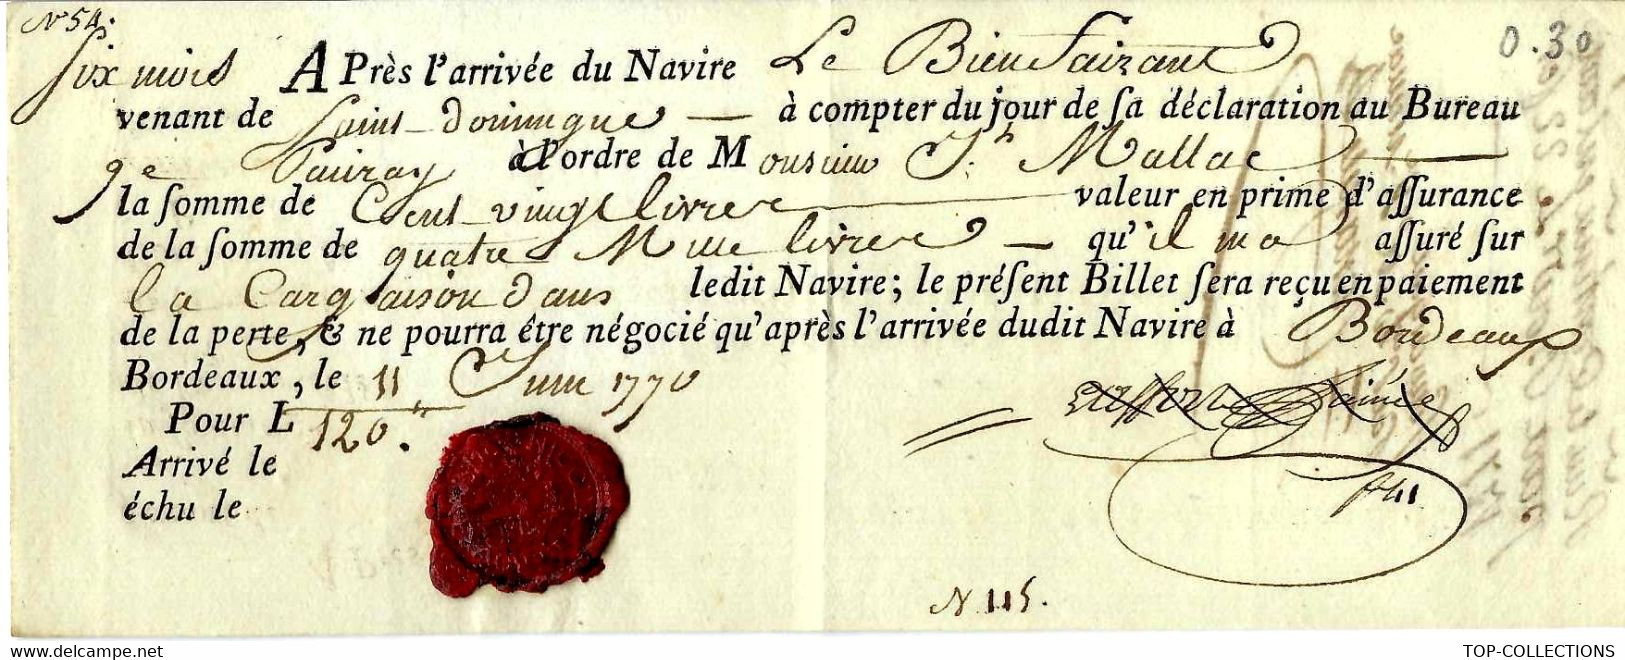 N° 54.
0.30
Six mois APrès l'arrivée du Navire Le Bienfaizant
venant de Saint-domingue — à compter du jour de ſa déclaration au Bureau
je Pairay à l'ordre de Monsieur Jh Mallac
la ſomme de Cent vingt livres valeur en prime d'aſſurance
de la ſomme de quatre Mille livres — qu'il ma aſſuré ſur
la Cargaison dans ledit Navire; le préſent Billet ſera reçu en paiement
de la perte, & ne pourra être négocié qu'après l'arrivée dudit Navire à Bordeaux
Bordeaux, le 11 Juin 1770
Pour L 120.
Arrivé le
échu le
N 115.
delcampe.net
TOP-COLLECTIONS